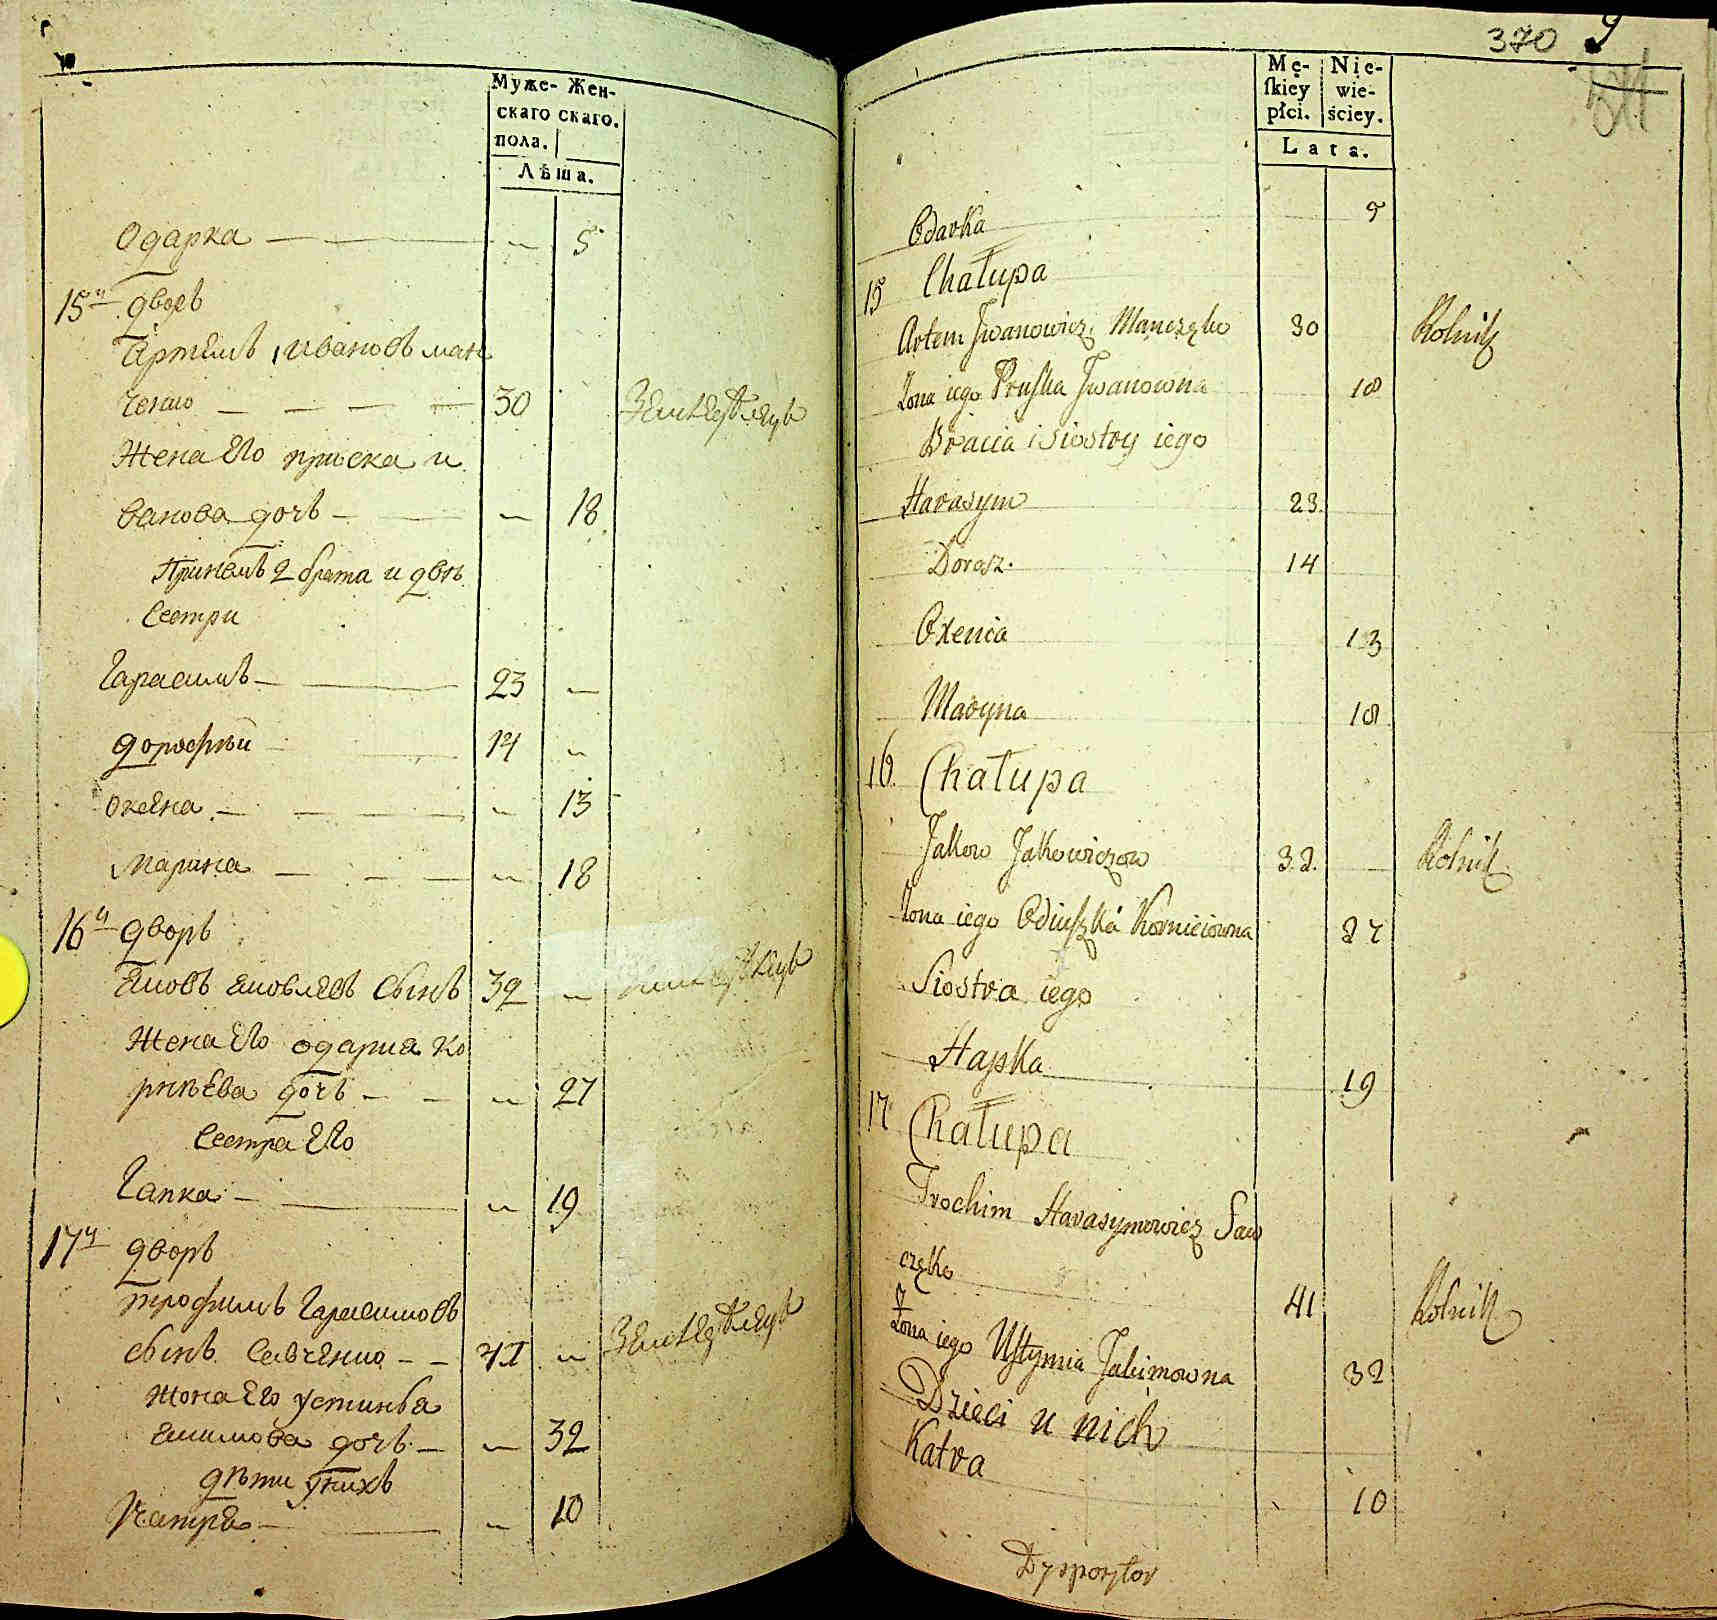 Муже- Жен-
скаго скаго.
пола.
Лѣта.
Одарка — — — 5
15й дворъ
Артемъ Ивановъ ман
ченко — — — — 30 Земледѣлецъ
Жена Его приска и
ванова дочь — — — 18
При немъ 2 брата и двѣ
Сестри
Гарасимъ — — 23 —
дорофѣй — 14 —
оксена — — — — 13
Марина — — — — 18
16й дворъ
Яковъ Яковлевъ Сынъ 32 — Земледѣлецъ
Жена Его одарка ко
рнѣева дочь — — — 27
Сестра Его
Гапка — — — 19
17й дворъ
трофимъ Гарасимовъ
сынъ Савченко — — 41 — Земледѣлецъ
жона Его устинья
Якимова дочь — — 32
дѣти у нихъ
Катря — — — 10
370 9
Mę- Nie-
skiey wie-
płci. ściey.
Lata.
Odarka 5
15 Chałupa
Artem Jwanowicz Manczęko 30 Rolnik
Żona iego Pryska Jwanowna 18
Bracia i Siostry iego
Harasym 23
Dorosz. 14
Oxenia 13
Maryna 18
16 Chałupa
Jakow Jakowiczow 32. Rolnik
Żona iego Korneiowna 27
Siostra iego
Hapka 19
17 Chałupa
Trochim Harasymowicz Saw
częko 41 Rolnik
Żona iego Ustymia Jakimowna 32
Dzieci u nich
Katra 10